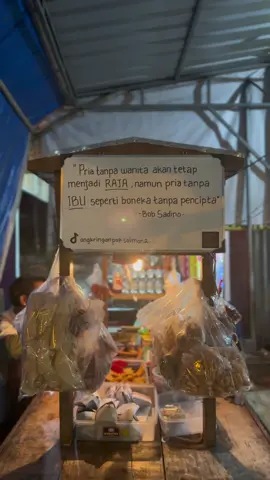 "Pria tanpa wanita akan tetap
menjadi RAJA, namun pria tanpa
IBU seperti boneka tanpa pencipta"
-Bob Sadino-